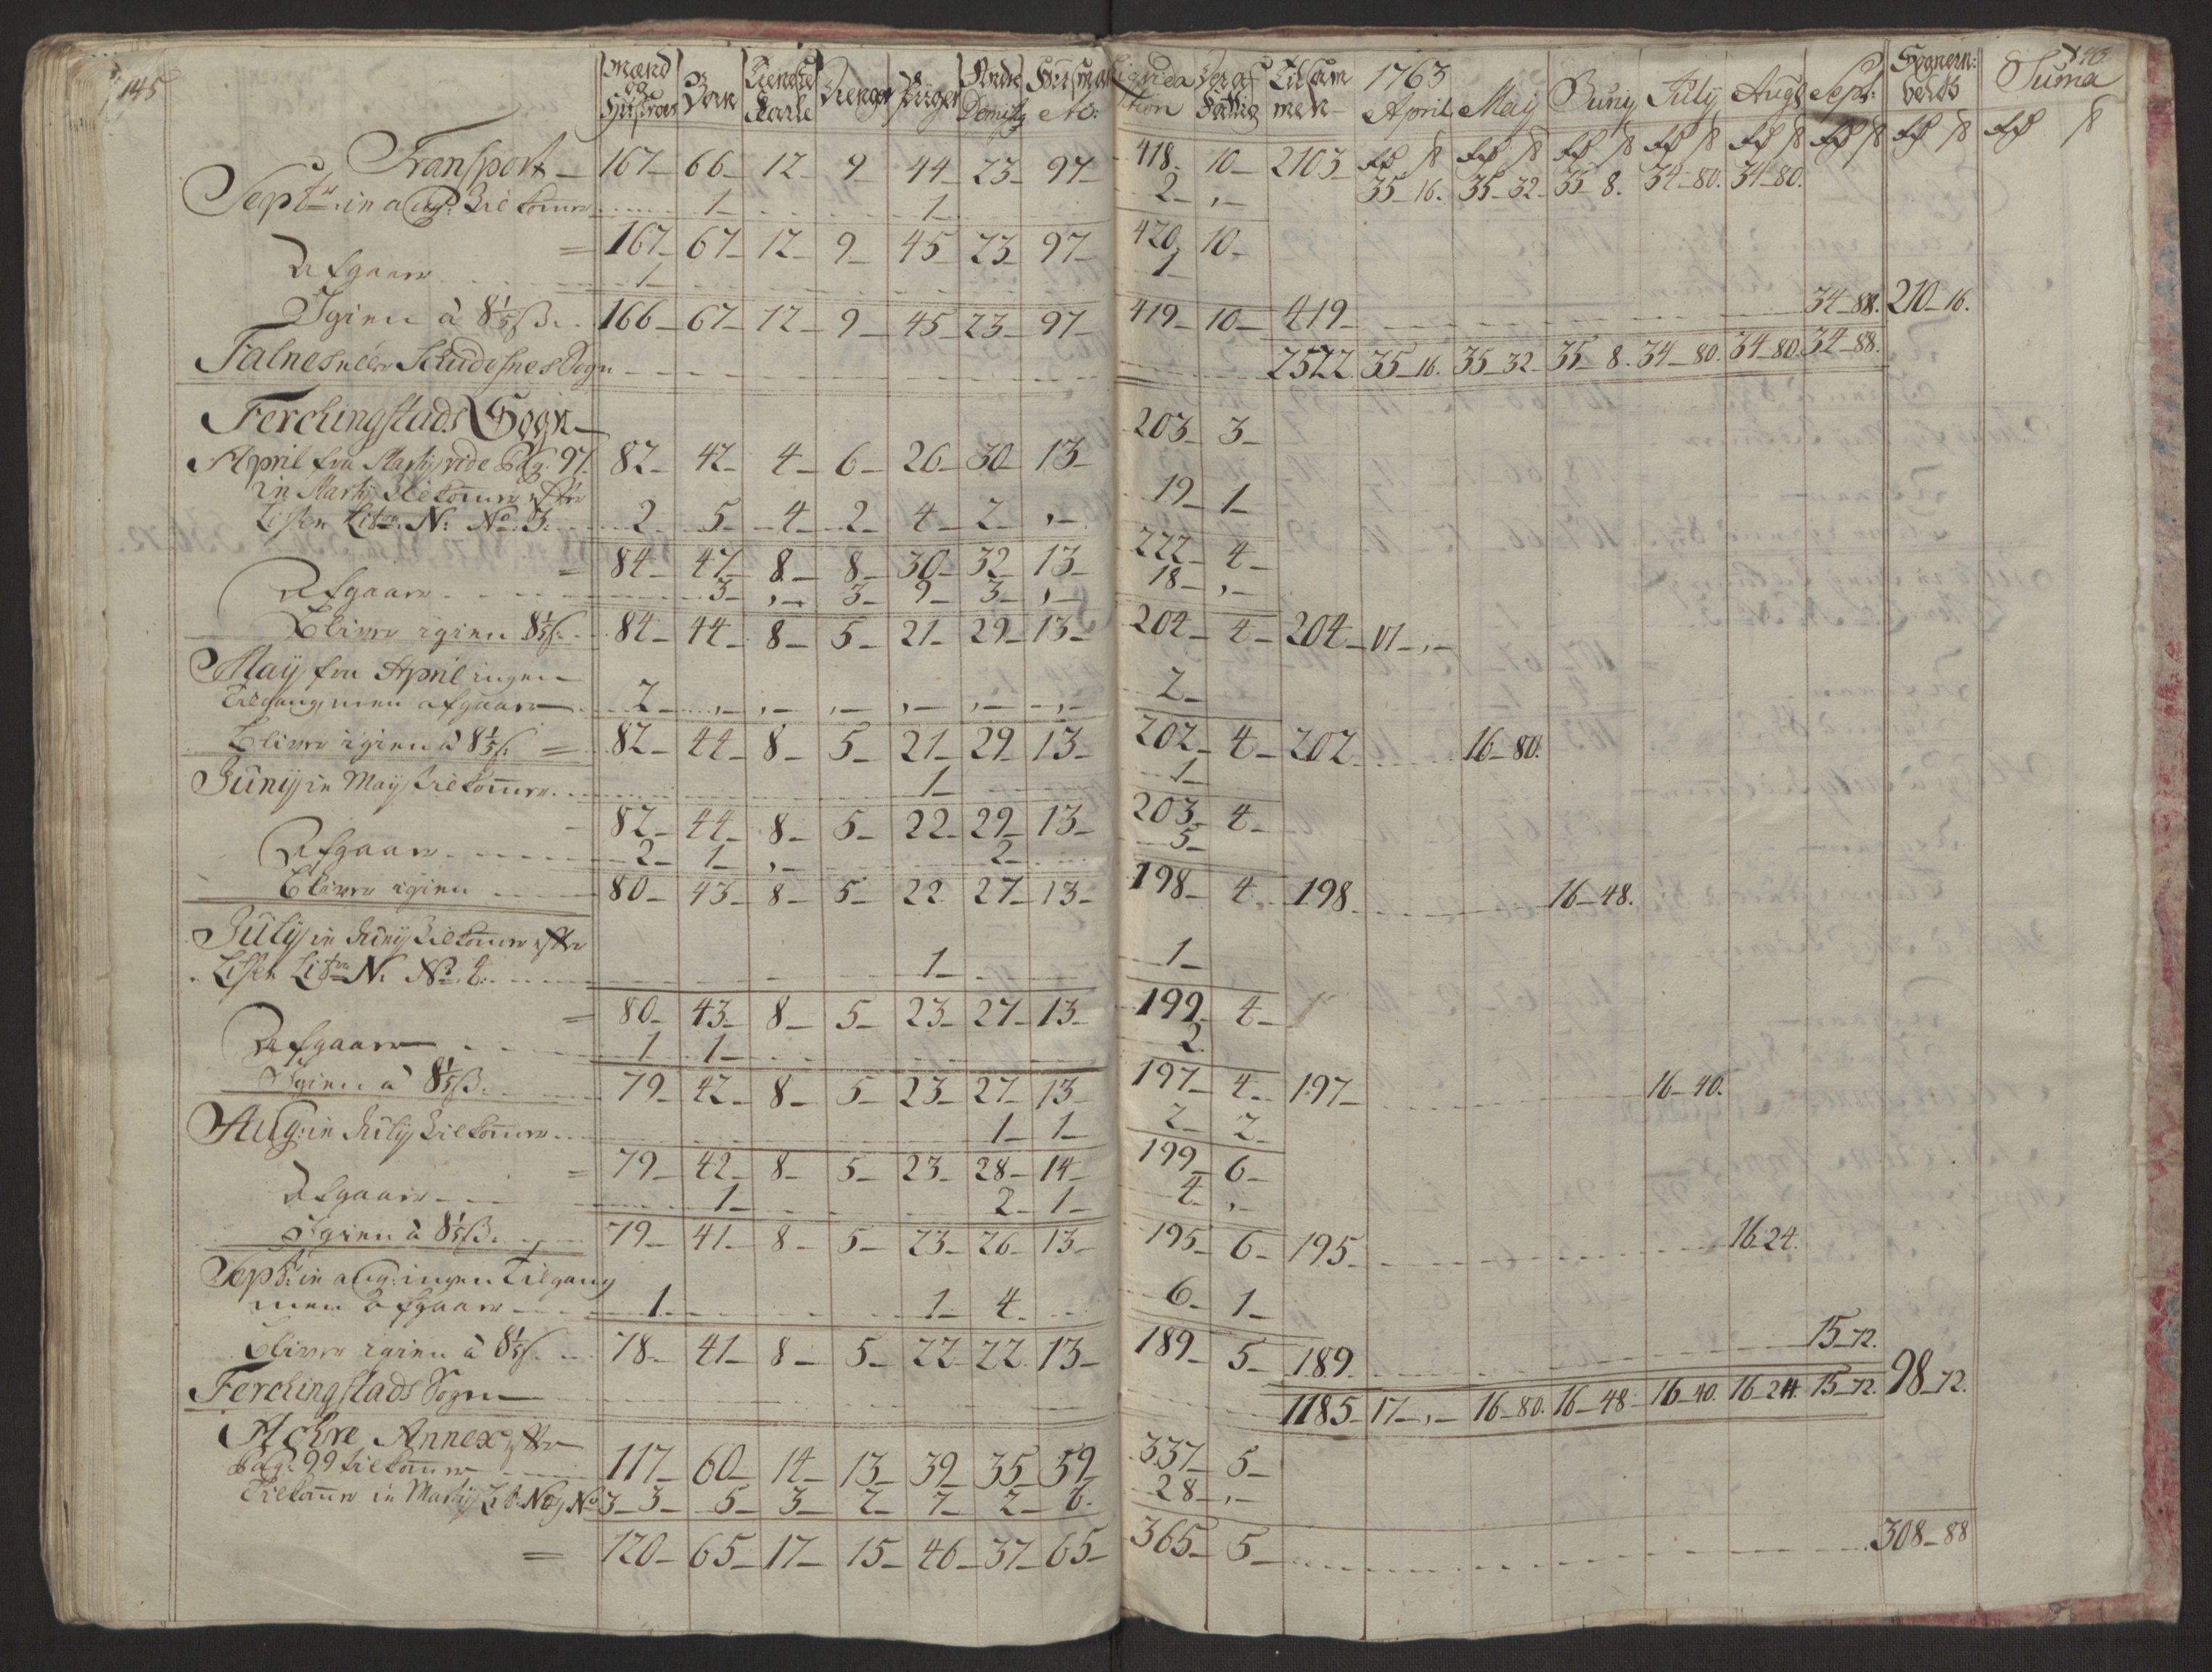 145
Mænd og Hustruer | Børn | Tieneste Karle | Drenge | Piiger | Andre Domistiq | Huusmænd etc. | tion | Der af Fattig | Tilsam men | 1763 April | Maij | Junij | Julij | Aug | Sept: | Sognern: beløb | Suma
Rd ß | Rd ß | Rd ß | Rd ß | Rd ß | Rd ß | Rd ß | Rd ß
Transport - 167 - 66 - 12 - 9 - 44 - 23 - 97 - 418 - 10 - 2103 - 35 - 16. 35 - 32 - 35 - 8. 34 - 80. 34 - 80.
Septr: in aug: Tilkommer 1 - 1 - 2 - , -
= 167 - 67 - 12 - 9 - 45 - 23 - 97 - 420 - 10 -
Afgaaer 1 - 1 -
Igien à 8 1/5 ß. 166 - 67 - 12 - 9 - 45 - 23 - 97 - 419 - 10 - 419 - 34 - 88. 210 - 16.
Falnes eller Schudesnes Sogn - 2522. 35 - 16. 35 - 32 - 35 - 8. 34 - 80. 34 - 80 34 - 88.
Ferchingstads Sogn -
April fra Martij vide Pag. 97. 82 - 42 - 4 - 6 - 26 - 30 - 13 - 203 - 3 -
in Martij Tilkommer efter
Listen Litr. N: No. 3. 2 - 5 - 4 - 2 - 4 - 2 - , - 19 - 1 -
= 84 - 47 - 8 - 8 - 30 - 32 - 13 - 222 - 4 -
Afgaaer 3 - , - 3 - 9 - 3 - , - 18 - , -
Bliver igien 8 1/5 ß. 84 - 44 - 8 - 5 - 21 - 29 - 13 - 204 - 4 - 204 - 17 - , -
Maij fra April ingen
Tilgang, men afgaaer 2 - , - , - , - , - , - , - 2 -
Bliver igien à 8 1/5 ß. = 82 - 44 - 8 - 5 - 21 - 29 - 13 - 202 - 4 - 202 16 - 80.
Junij in Maij Tilkommer 1 - 1 -
- 82 - 44 - 8 - 5 - 22 - 29 - 13 - 203 - 4 -
Afgaaer 2 - 1 - , - 2 - 5 -
Bliver igien 80 - 43 - 8 - 5 - 22 27 - 13 - 198 - 4 - 198 16 - 48.
Julij in Junij Tilkommer efter
Listen Litr N: No. 4. 1 - 1 -
= 80 - 43 - 8 - 5 - 23 - 27 - 13 - 199 - 4 -
Afgaaer 1 1 - 2
Igien à 8 1/5 ß. 79 - 42 - 8 - 5 - 23 - 27 - 13 - 197 - 4 - 197 - 16 - 40.
Aug: in Julij Tilkommer 1 - 1 - 2 - 2 -
= 79 - 42 - 8 - 5 - 23 - 28 - 14 - 199 - 6 -
Afgaaer 1 - 2 - 1 - 4 - , -
Igien à 8 1/5 ß. 79 - 41 - 8 - 5 - 23 - 26 - 13 - 195 - 6 - 195 - 16 24.
Sept: in aug: ingen Tilgang
men afgaaer 1 - 1 - 4 - 6 - 1 -
Bliver igien à 8 1/5 ß. 78 - 41 - 8 - 5 - 22 - 22. 13 - 189 - 5 - 189. 15 - 72.
Ferchingstads Sogn 1185 - 17 - , - 16 - 80. 16 - 48 - 16 - 40. 16 - 24. 15 - 72. 98 - 72.
Achre Annex efter
Pag: 99 tilkommer 117 - 60 - 14 - 13 - 39 - 35 - 59 - 337 - 5 -
Tilkommer in Martij Lit: N og No 3 - 3 - 5 - 3 - 2 - 7 - 2 - 6. 28 - , -
= 120 - 65 - 17 - 15 - 46 - 37 - 65 - 365 - 5 - 308 - 88